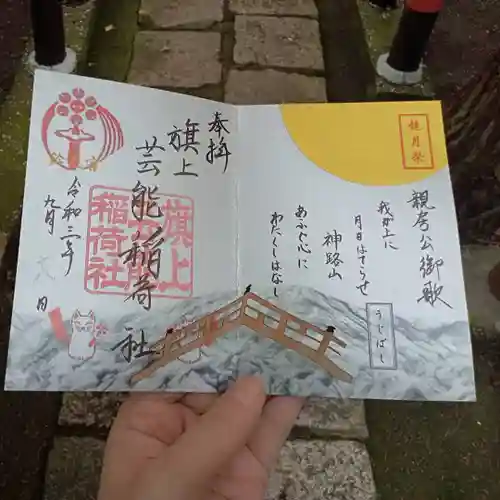 奉拝
旗上
芸能稲荷社
旗上
稲荷社
令和三年
九月
日
観月祭
親房公御歌
我が上に
月日はてらせ
神路山
あふぐ心に
わたくしはなし
うじばし